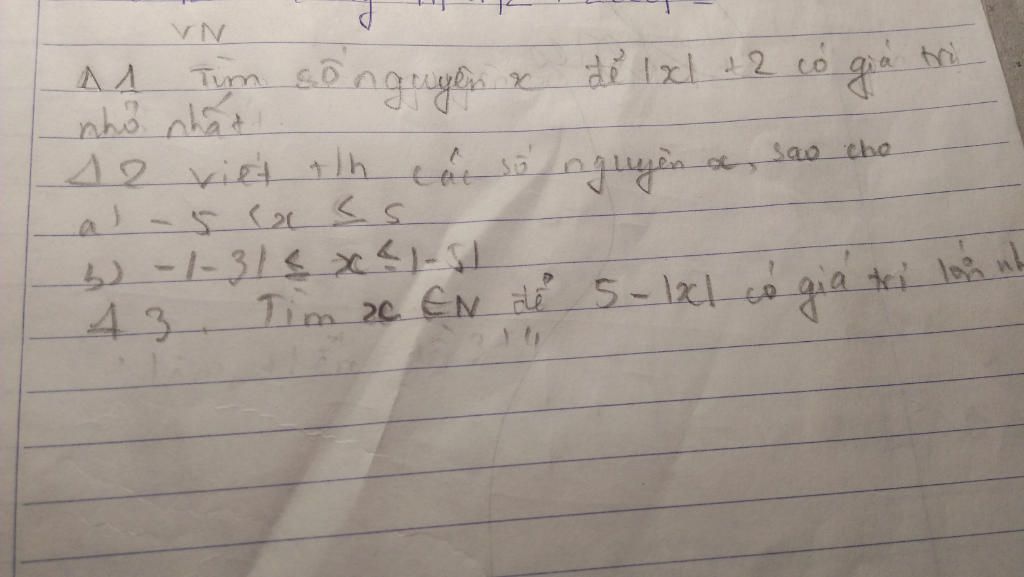 VN
11 Tìm số nguyên x để |x| + 2 có giá trị
nhỏ nhất
12 viết t/h các số nguyên x, sao cho
a) - 5 < x ≤ 5
b) - |-3| ≤ x ≤ |-5|
13. Tìm x ∈ N để 5 - |x| có giá trị lớn nh